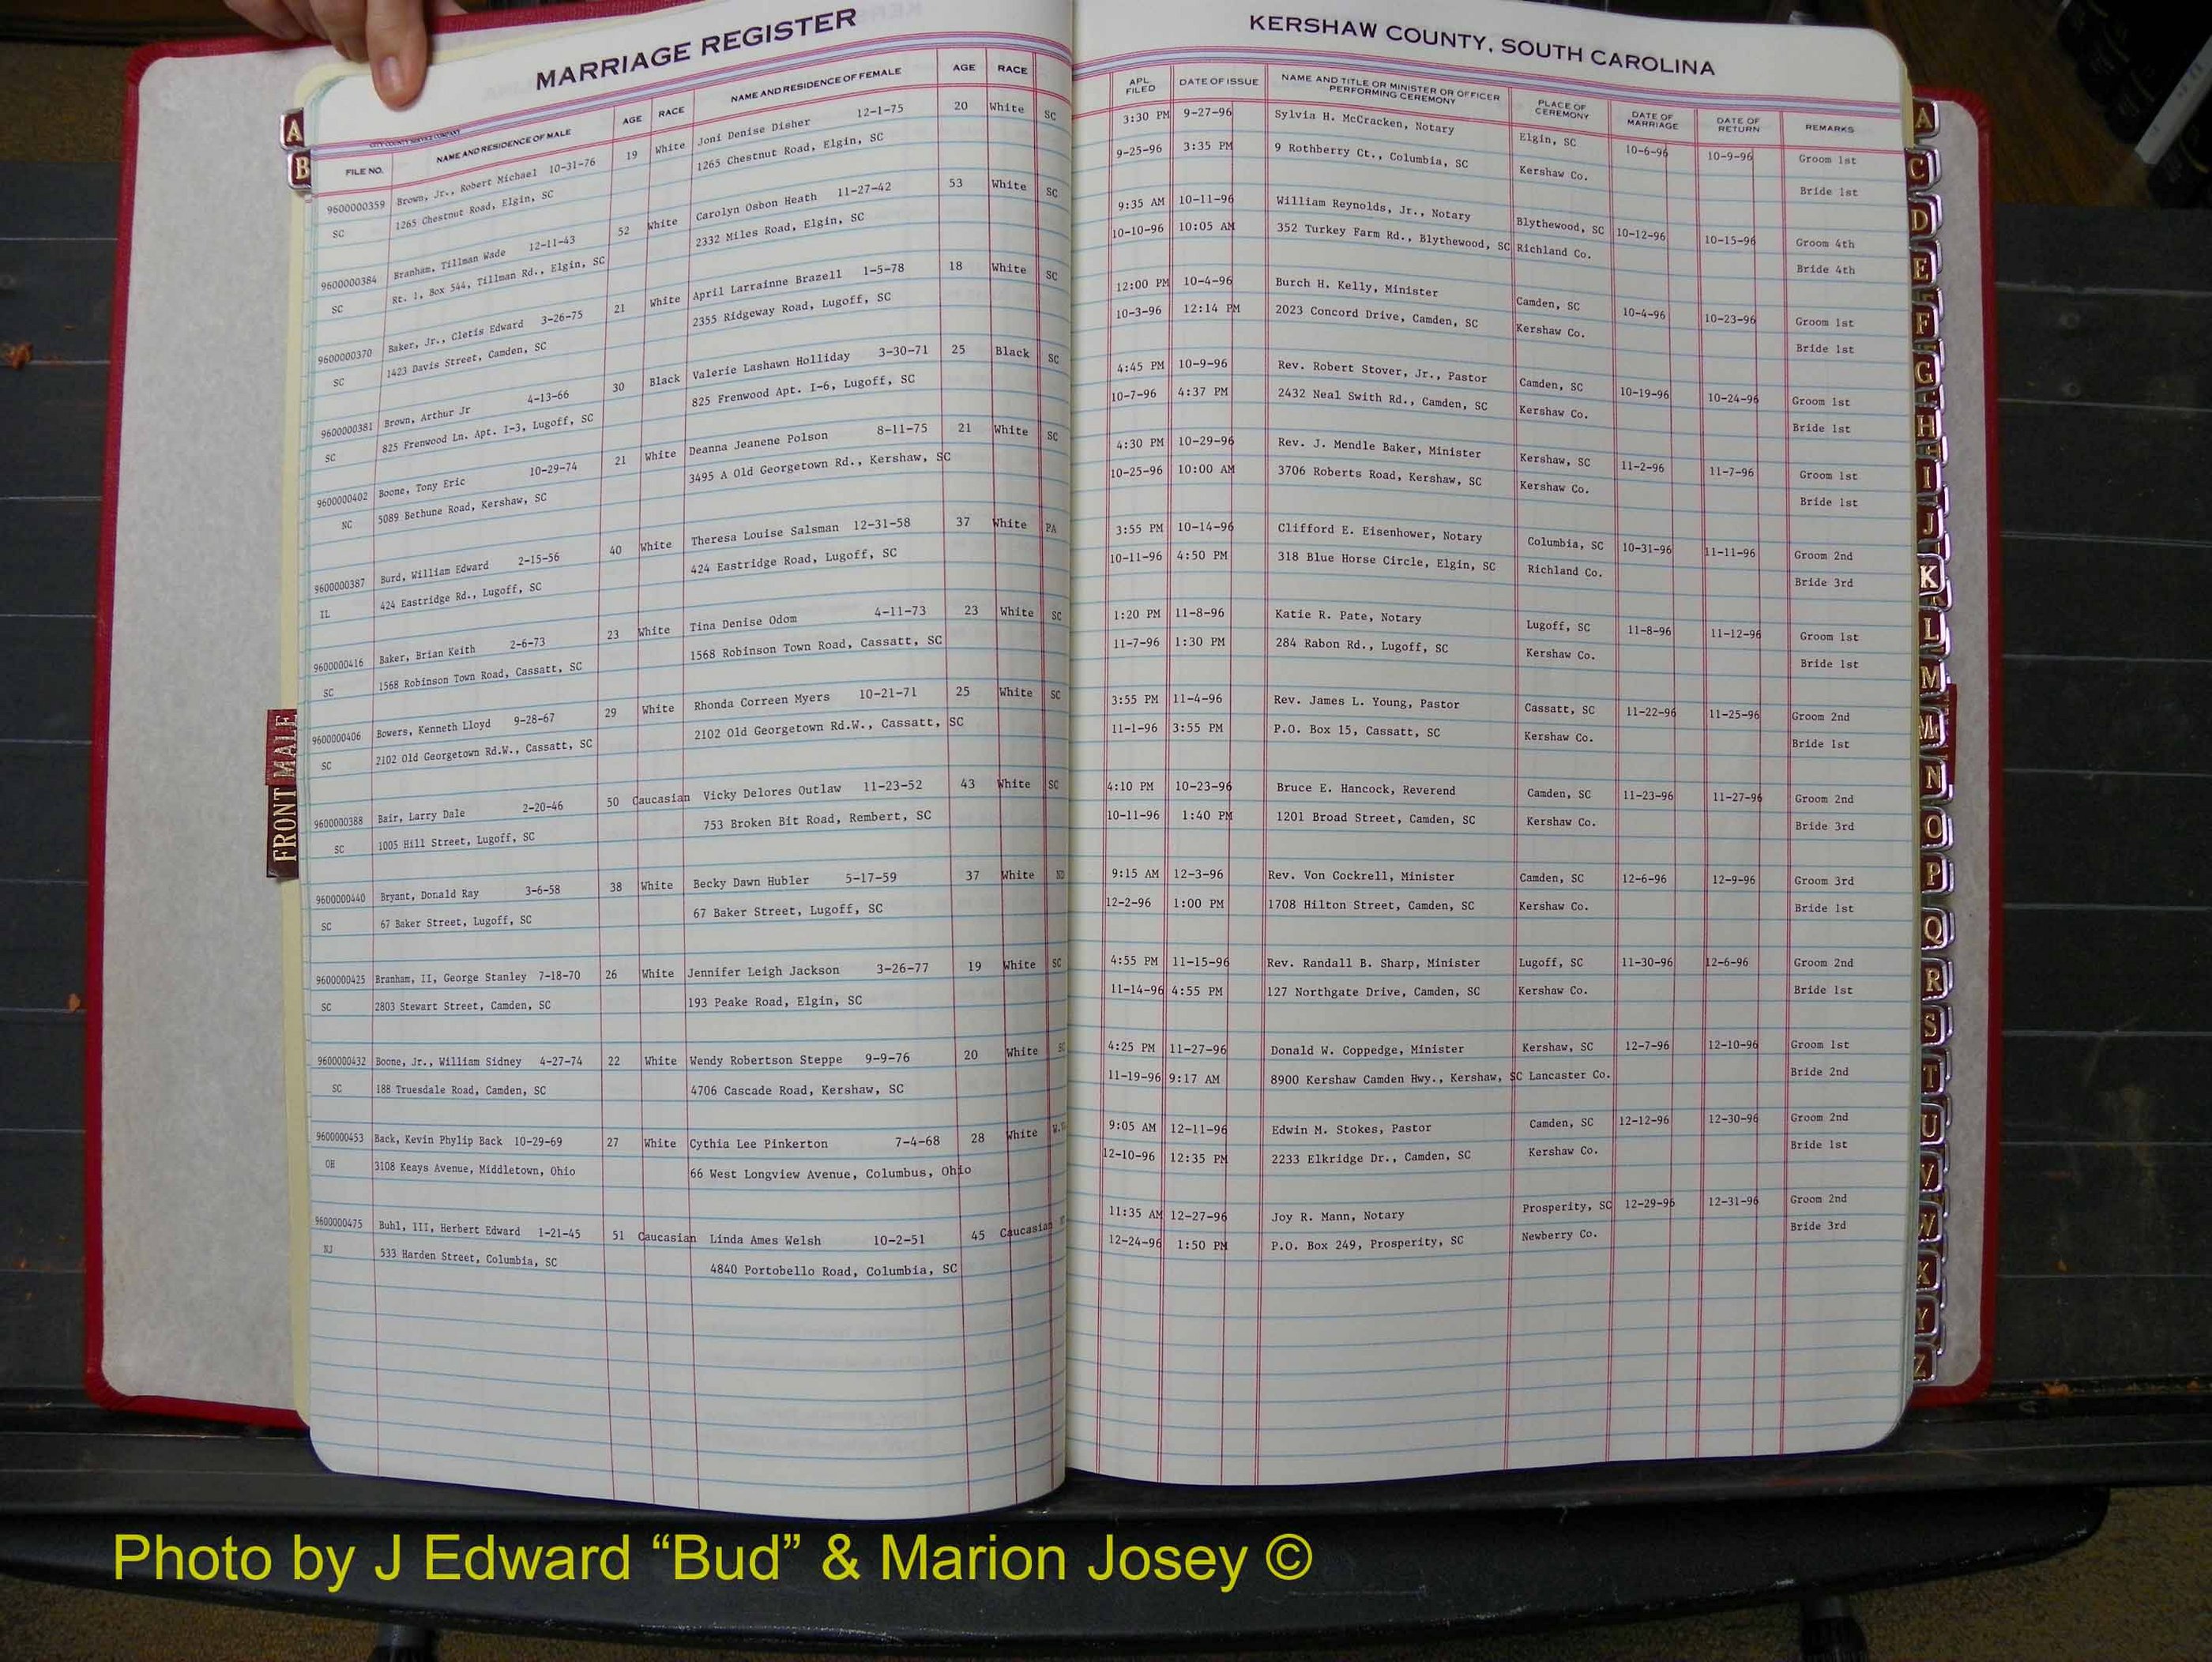 MARRIAGE REGISTER
KERSHAW COUNTY, SOUTH CAROLINA
FILE NO. NAME AND RESIDENCE OF MALE AGE RACE NAME AND RESIDENCE OF FEMALE AGE RACE APL. FILED DATE OF ISSUE NAME AND TITLE OR MINISTER OR OFFICER PERFORMING CEREMONY PLACE OF CEREMONY DATE OF MARRIAGE DATE OF RETURN REMARKS
9600000359 Brown, Jr., Robert Michael 10-31-76 19 White Joni Denise Disher 12-1-75 20 White SC 3:30 PM 9-27-96 Sylvia H. McCracken, Notary Elgin, SC 10-6-96 10-9-96 Groom 1st
SC 1265 Chestnut Road, Elgin, SC 1265 Chestnut Road, Elgin, SC 9-25-96 3:35 PM 9 Rothberry Ct., Columbia, SC Kershaw Co. Bride 1st
9600000384 Branham, Tillman Wade 12-11-43 52 White Carolyn Osbon Heath 11-27-42 53 White SC 9:35 AM 10-11-96 William Reynolds, Jr., Notary Blythewood, SC 10-12-96 10-15-96 Groom 4th
SC Rt. 1, Box 544, Tillman Rd., Elgin, SC 2332 Miles Road, Elgin, SC 10-10-96 10:05 AM 352 Turkey Farm Rd., Blythewood, SC Richland Co. Bride 4th
9600000370 Baker, Jr., Cletis Edward 3-26-75 21 White April Larrainne Brazell 1-5-78 18 White SC 12:00 PM 10-4-96 Burch H. Kelly, Minister Camden, SC 10-4-96 10-23-96 Groom 1st
SC 1423 Davis Street, Camden, SC 2355 Ridgeway Road, Lugoff, SC 10-3-96 12:14 PM 2023 Concord Drive, Camden, SC Kershaw Co. Bride 1st
9600000381 Brown, Arthur Jr 4-13-66 30 Black Valerie Lashawn Holliday 3-30-71 25 Black SC 4:45 PM 10-9-96 Rev. Robert Stover, Jr., Pastor Camden, SC 10-19-96 10-24-96 Groom 1st
SC 825 Frenwood Ln. Apt. I-3, Lugoff, SC 825 Frenwood Apt. I-6, Lugoff, SC 10-7-96 4:37 PM 2432 Neal Swith Rd., Camden, SC Kershaw Co. Bride 1st
9600000402 Boone, Tony Eric 10-29-74 21 White Deanna Jeanene Polson 8-11-75 21 White SC 4:30 PM 10-29-96 Rev. J. Mendle Baker, Minister Kershaw, SC 11-2-96 11-7-96 Groom 1st
NC 5089 Bethune Road, Kershaw, SC 3495 A Old Georgetown Rd., Kershaw, SC 10-25-96 10:00 AM 3706 Roberts Road, Kershaw, SC Kershaw Co. Bride 1st
9600000387 Burd, William Edward 2-15-56 40 White Theresa Louise Salsman 12-31-58 37 White PA 3:55 PM 10-14-96 Clifford E. Eisenhower, Notary Columbia, SC 10-31-96 11-11-96 Groom 2nd
IL 424 Eastridge Rd., Lugoff, SC 424 Eastridge Road, Lugoff, SC 10-11-96 4:50 PM 318 Blue Horse Circle, Elgin, SC Richland Co. Bride 3rd
9600000416 Baker, Brian Keith 2-6-73 23 White Tina Denise Odom 4-11-73 23 White SC 1:20 PM 11-8-96 Katie R. Pate, Notary Lugoff, SC 11-8-96 11-12-96 Groom 1st
SC 1568 Robinson Town Road, Cassatt, SC 1568 Robinson Town Road, Cassatt, SC 11-7-96 1:30 PM 284 Rabon Rd., Lugoff, SC Kershaw Co. Bride 1st
9600000406 Bowers, Kenneth Lloyd 9-28-67 29 White Rhonda Correen Myers 10-21-71 25 White SC 3:55 PM 11-4-96 Rev. James L. Young, Pastor Cassatt, SC 11-22-96 11-25-96 Groom 2nd
SC 2102 Old Georgetown Rd.W., Cassatt, SC 2102 Old Georgetown Rd.W., Cassatt, SC 11-1-96 3:55 PM P.O. Box 15, Cassatt, SC Kershaw Co. Bride 1st
9600000388 Bair, Larry Dale 2-20-46 50 Caucasian Vicky Delores Outlaw 11-23-52 43 White SC 4:10 PM 10-23-96 Bruce E. Hancock, Reverend Camden, SC 11-23-96 11-27-96 Groom 2nd
SC 1005 Hill Street, Lugoff, SC 753 Broken Bit Road, Rembert, SC 10-11-96 1:40 PM 1201 Broad Street, Camden, SC Kershaw Co. Bride 3rd
9600000440 Bryant, Donald Ray 3-6-58 38 White Becky Dawn Hubler 5-17-59 37 White 9:15 AM 12-3-96 Rev. Von Cockrell, Minister Camden, SC 12-6-96 12-9-96 Groom 3rd
SC 67 Baker Street, Lugoff, SC 67 Baker Street, Lugoff, SC 12-2-96 1:00 PM 1708 Hilton Street, Camden, SC Kershaw Co. Bride 1st
9600000425 Branham, II, George Stanley 7-18-70 26 White Jennifer Leigh Jackson 3-26-77 19 White SC 4:55 PM 11-15-96 Rev. Randall B. Sharp, Minister Lugoff, SC 11-30-96 12-6-96 Groom 2nd
SC 2803 Stewart Street, Camden, SC 193 Peake Road, Elgin, SC 11-14-96 4:55 PM 127 Northgate Drive, Camden, SC Kershaw Co. Bride 1st
9600000432 Boone, Jr., William Sidney 4-27-74 22 White Wendy Robertson Steppe 9-9-76 20 White 4:25 PM 11-27-96 Donald W. Coppedge, Minister Kershaw, SC 12-7-96 12-10-96 Groom 1st
SC 188 Truesdale Road, Camden, SC 4706 Cascade Road, Kershaw, SC 11-19-96 9:17 AM 8900 Kershaw Camden Hwy., Kershaw, SC Lancaster Co. Bride 2nd
9600000453 Back, Kevin Phylip Back 10-29-69 27 White Cythia Lee Pinkerton 7-4-68 28 White 9:05 AM 12-11-96 Edwin M. Stokes, Pastor Camden, SC 12-12-96 12-30-96 Groom 2nd
OH 3108 Keays Avenue, Middletown, Ohio 66 West Longview Avenue, Columbus, Ohio 12-10-96 12:35 PM 2233 Elkridge Dr., Camden, SC Kershaw Co. Bride 1st
9600000475 Buhl, III, Herbert Edward 1-21-45 51 Caucasian Linda Ames Welsh 10-2-51 45 Caucasian 11:35 AM 12-27-96 Joy R. Mann, Notary Prosperity, SC 12-29-96 12-31-96 Groom 2nd
NJ 533 Harden Street, Columbia, SC 4840 Portobello Road, Columbia, SC 12-24-96 1:50 PM P.O. Box 249, Prosperity, SC Newberry Co. Bride 3rd
A
B
FRONT MALE
A
C
D
E
F
G
H
I
J
K
L
M
M
N
O
P
Q
R
S
T
U
V
W
X
Y
Z
Photo by J Edward “Bud” & Marion Josey ©